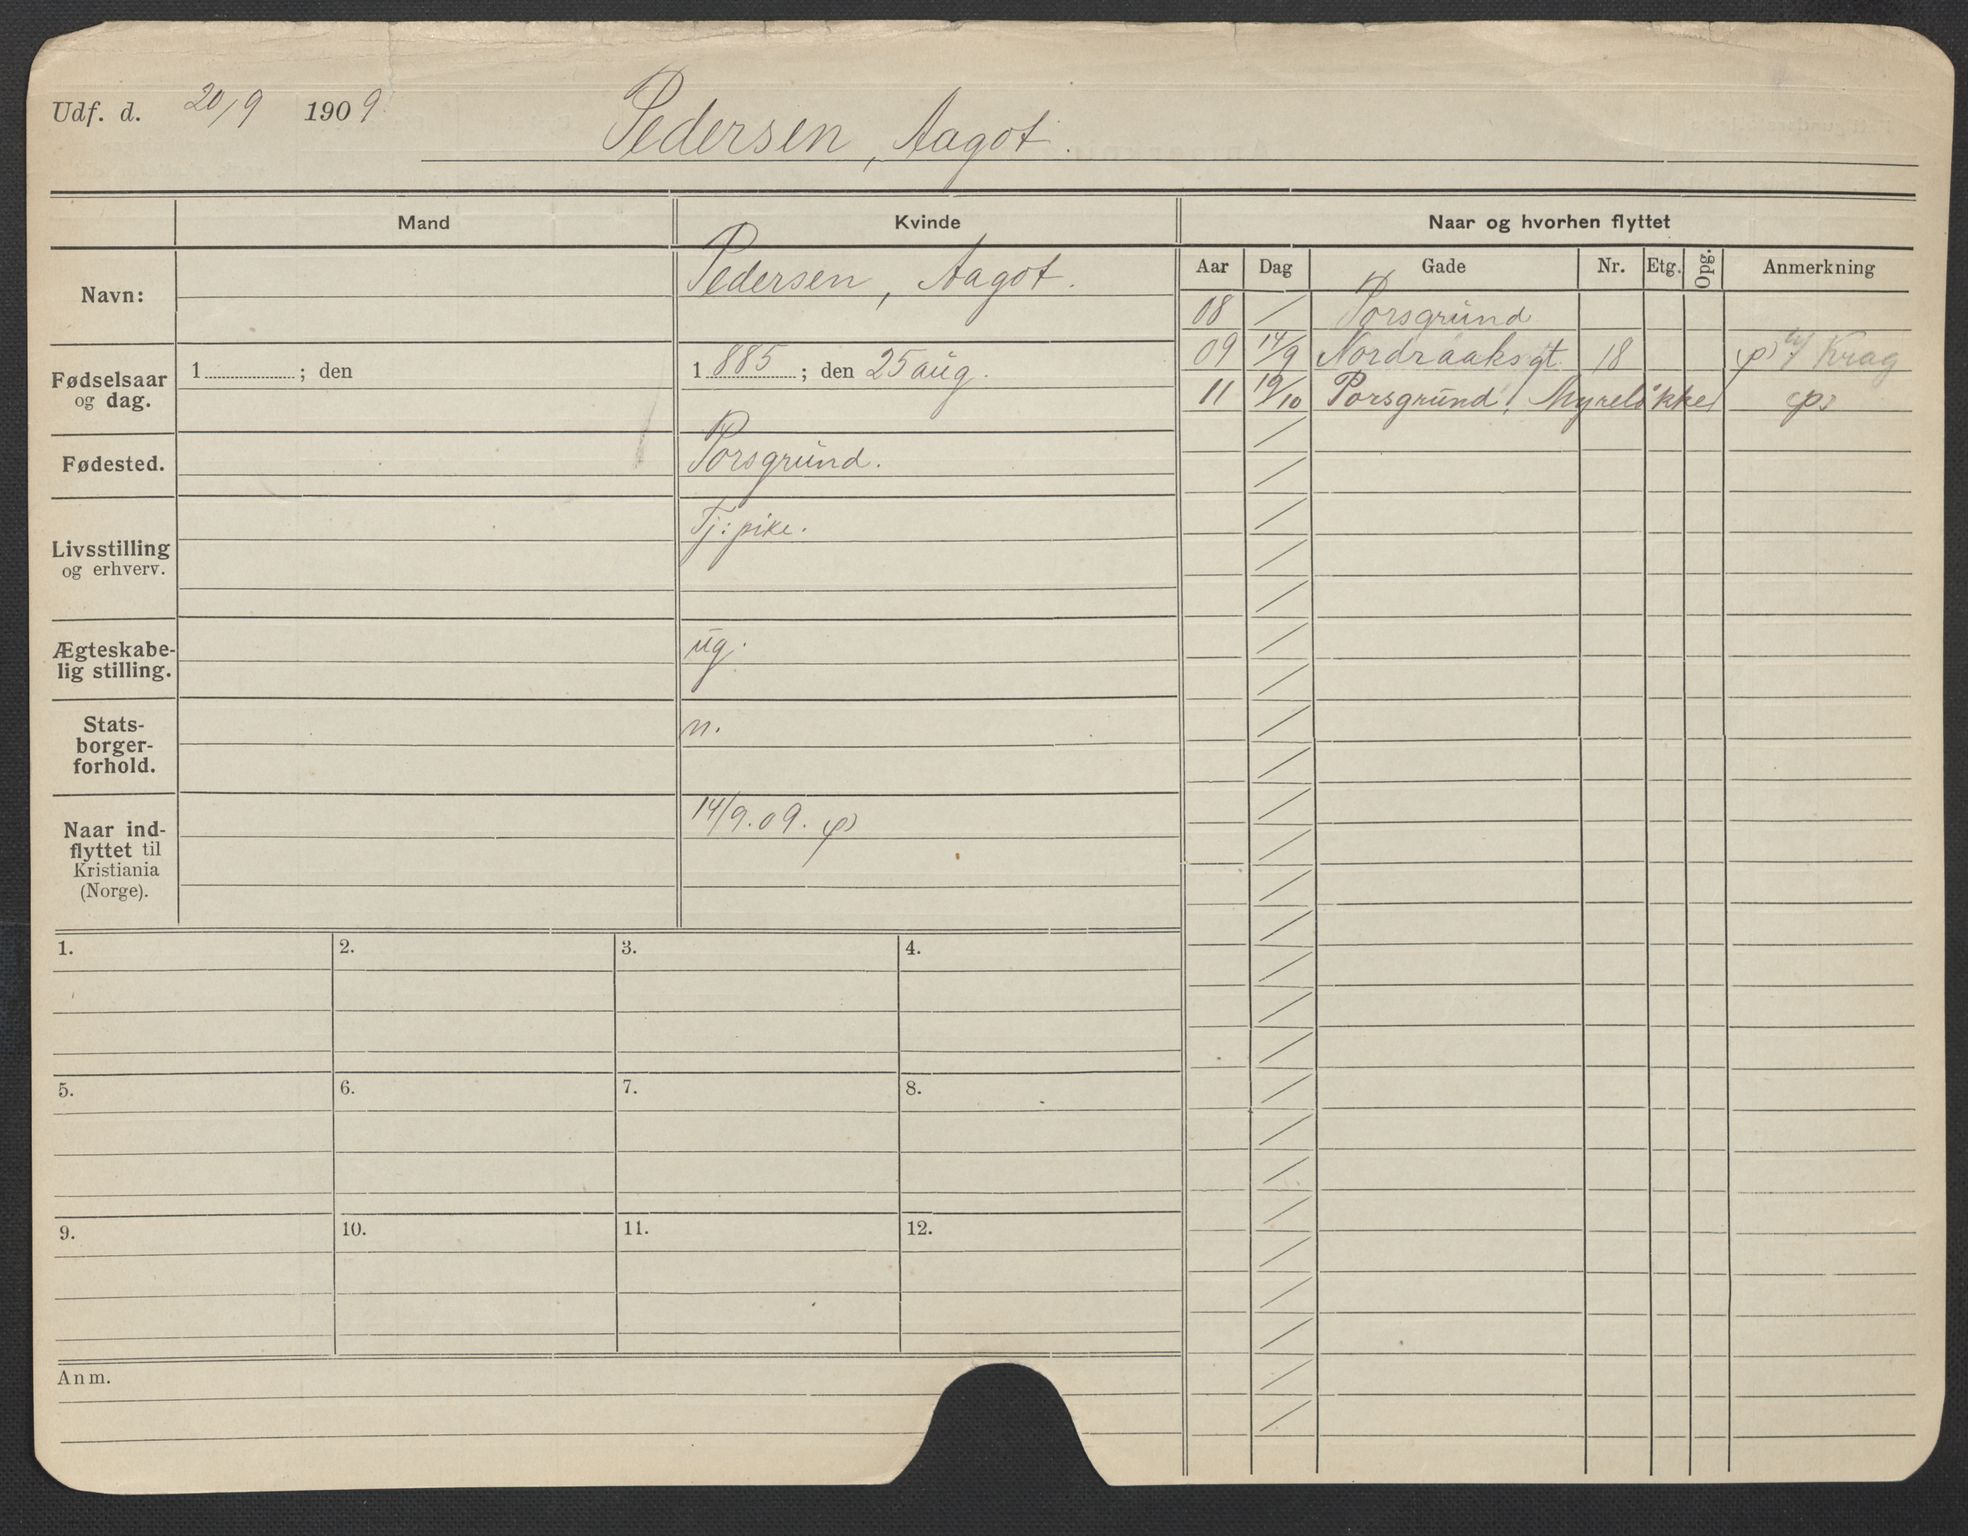 Udf. d. 20/9 1909
Pedersen, Aagot.
Mand
Kvinde
Naar og hvorhen flyttet
Aar Dag Gade Nr. Etg. Opg. Anmerkning
Navn:
Pedersen, Aagot.
08 / Porsgrund
09 14/9 Nordraaksgt. 18 (p) Krag
11 19/10 Porsgrund, Myreløkke (p)
Fødselsaar
og dag.
1 ; den
1885 ; den 25 aug.
Fødested.
Porsgrund.
Livsstilling
og erhverv.
Tj: pike.
Ægteskabe-
lig stilling.
ug.
Stats-
borger-
forhold.
n.
Naar ind-
flyttet til
Kristiania
(Norge).
14/9.09. (p)
1. 2. 3. 4.
5. 6. 7. 8.
9. 10. 11. 12.
Anm.